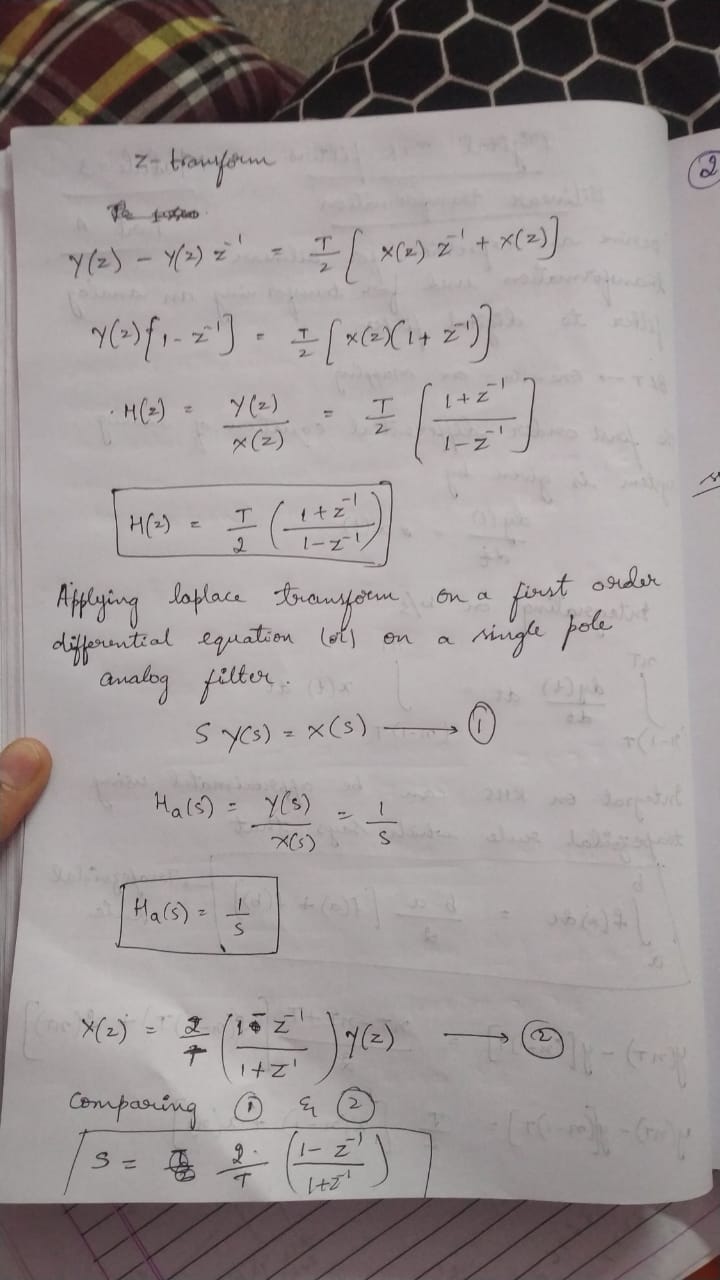 z-transform
Y(z) - Y(z) z⁻¹ = T/2 [ X(z) z⁻¹ + X(z)]
Y(z)[1 - z⁻¹] = T/2 [X(z)(1 + z⁻¹)]
H(z) = Y(z)/X(z) = T/2 [ (1+z⁻¹)/(1-z⁻¹) ]
H(z) = T/2 ( (1+z⁻¹)/(1-z⁻¹) )
Applying laplace transform on a first order
differential equation (or) on a single pole
analog filter.
S Y(s) = X(s) → ①
Ha(s) = Y(s)/X(s) = 1/S
Ha(s) = 1/S
X(z) = 2/T ( (1 - z⁻¹)/(1+z⁻¹) ) Y(z) → ②
Comparing ① & ②
S = 2/T ( (1 - z⁻¹)/(1+z⁻¹) )
②